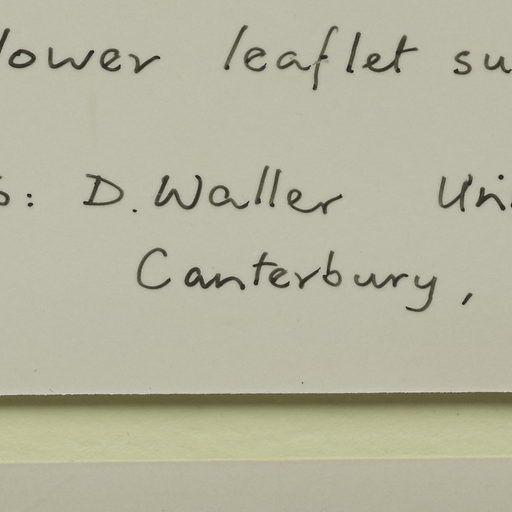 lower leaflet su
: D. Waller Uni
Canterbury,